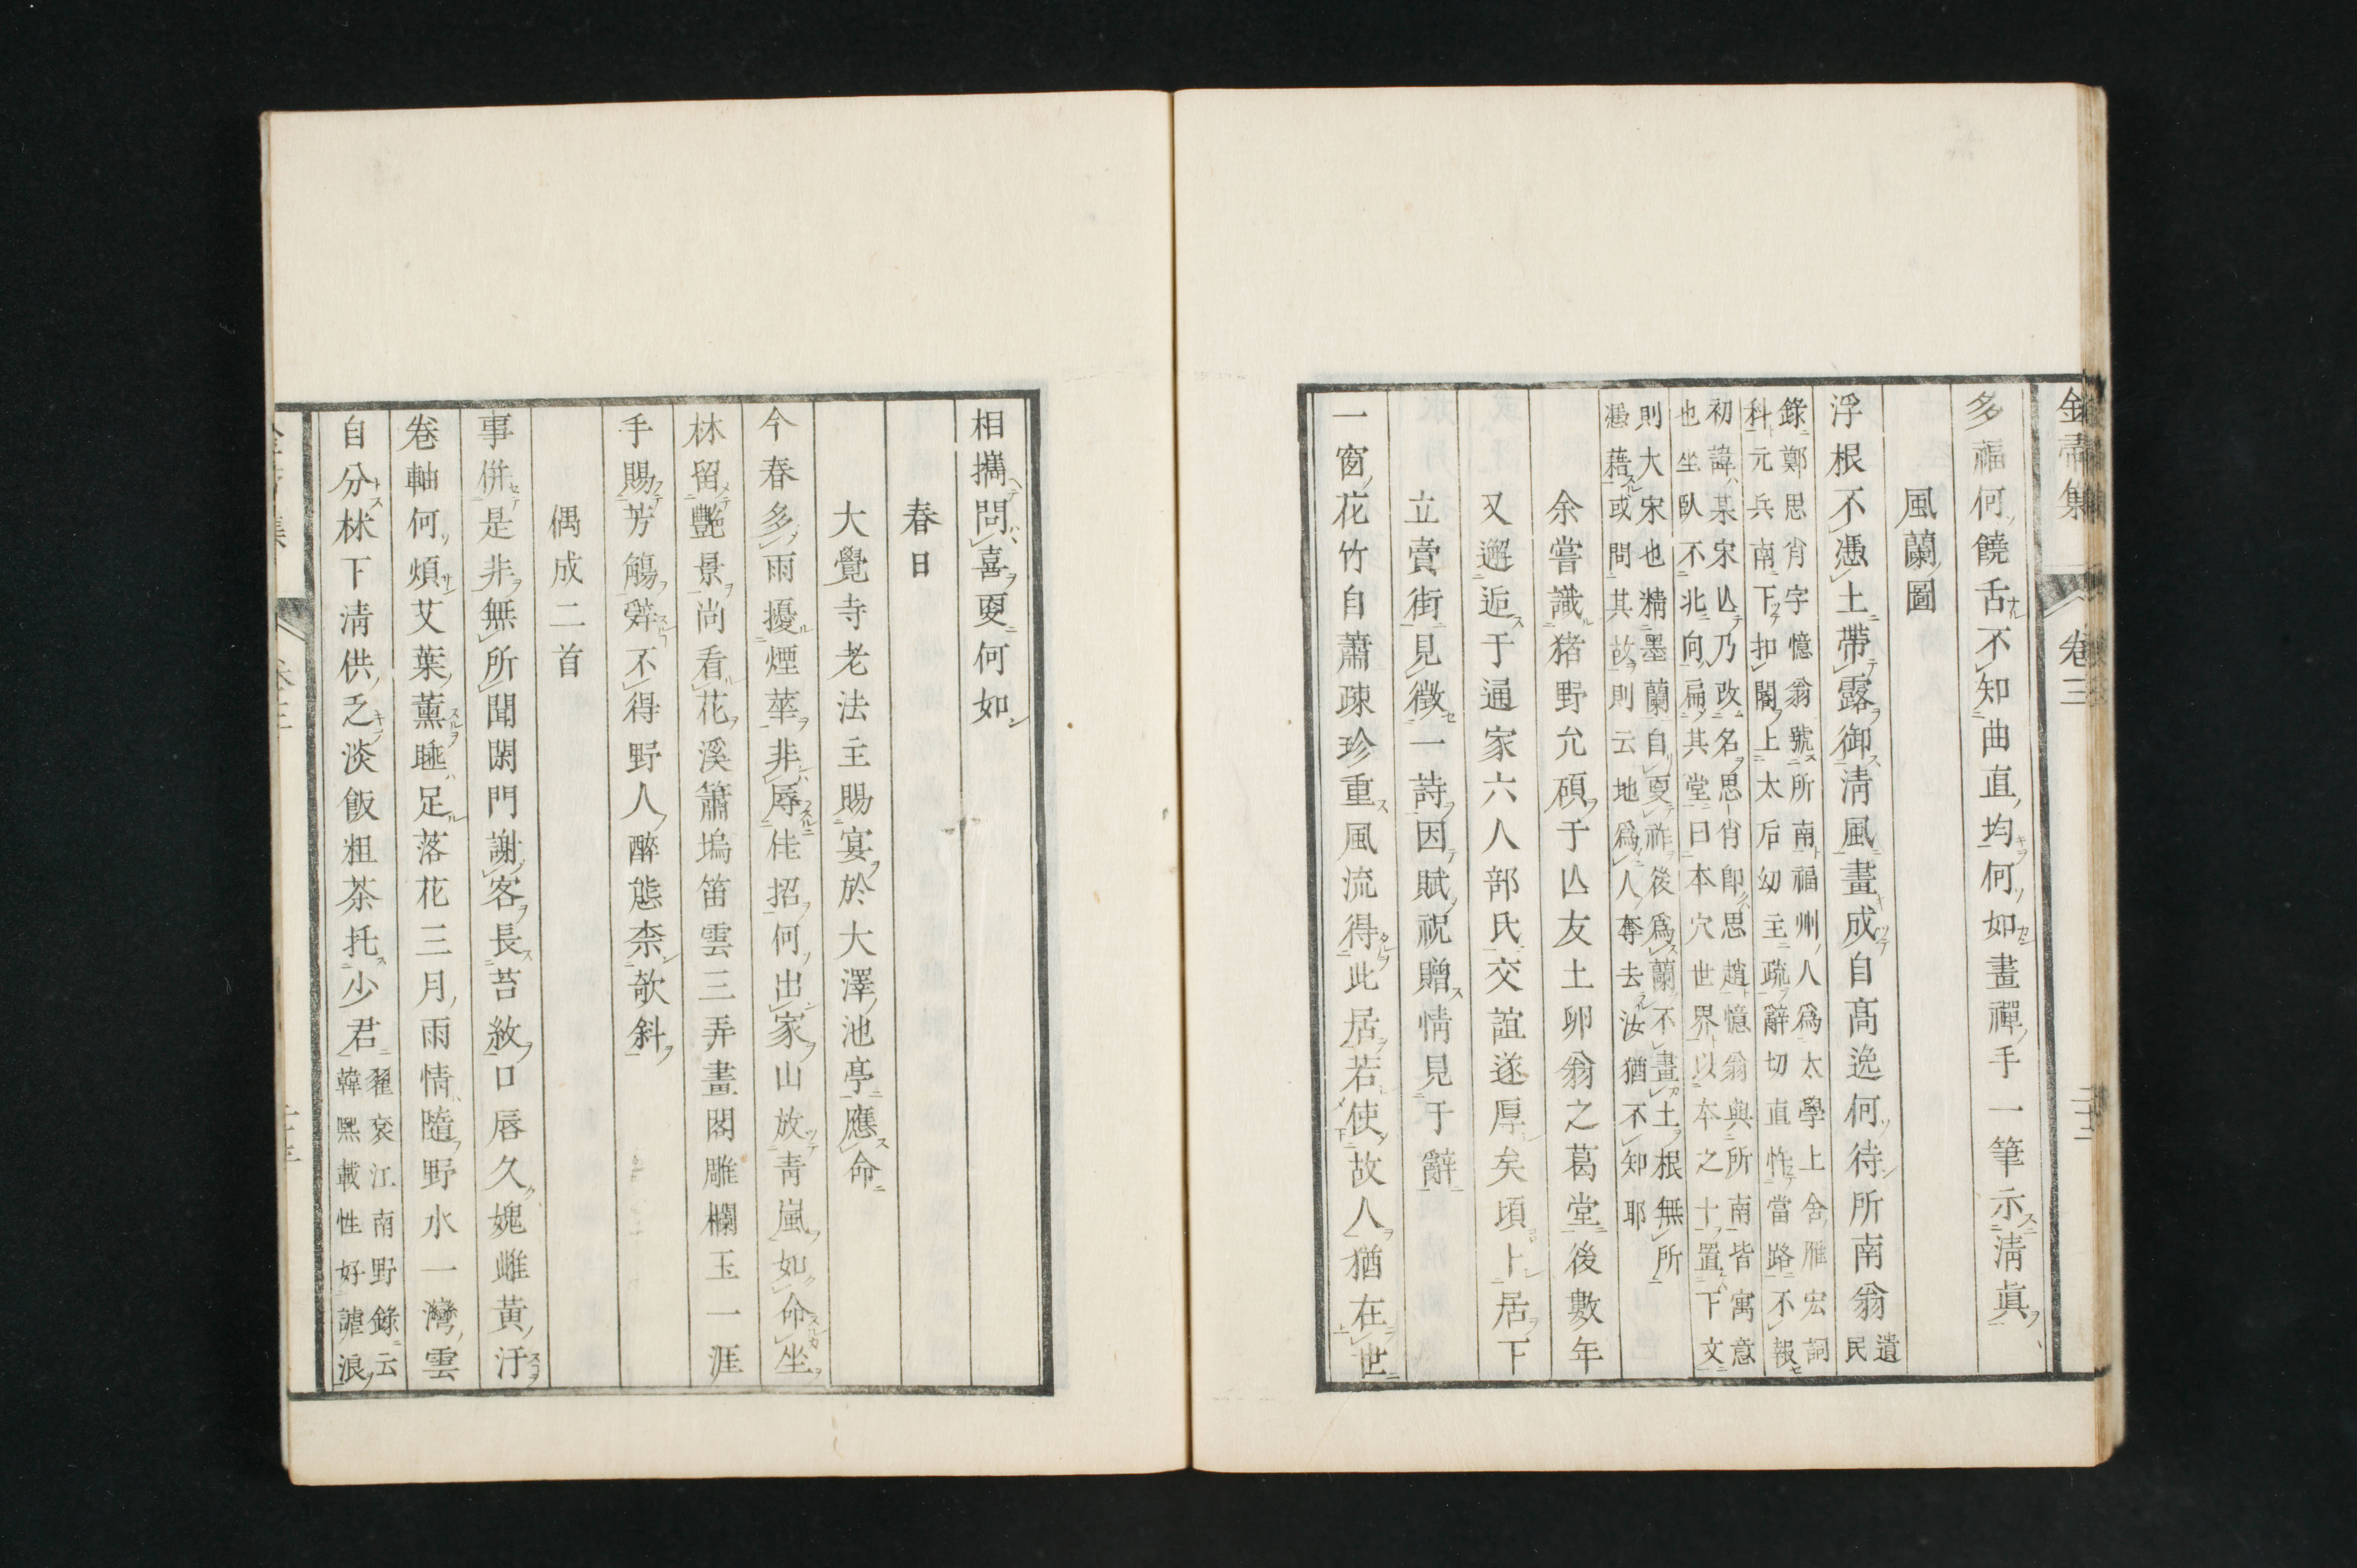 金帚集 卷三
多福何饒舌不知曲直均何如畫禪手一筆示清眞
風蘭圖
浮根不憑土帶露御清風畫成自高逸何待所南翁遺民
錄鄭思肖字憶翁號所南福州人爲太學上舍應宏詞
科元兵南下扣閽上太后幼主疏辭切直忤當路不報
初諱某宋亾乃改名思肖卽思趙憶翁與所南皆寓意
也坐臥不北向扁其堂曰本穴世界以本之十置下文
則大宋也精墨蘭自更祚後爲蘭不畫土根無所
憑藉或問其故則云地爲人奪去汝猶不知耶
余嘗識猪野允碩于亾友土卵翁之葛堂後數年
又邂逅于通家六人部氏交誼遂厚矣頃卜居下
立賣街見徵一詩因賦祝贈情見于辭
一窗花竹自蕭疎珍重風流得此居若使故人猶在世
相攜問喜更何如
春日
大覺寺老法主賜宴於大澤池亭應命
今春多雨擾煙華非辱佳招何出家山放靑嵐如命坐
林留艷景尚看花溪簫塢笛雲三弄畫閣雕欄玉一涯
手賜芳觴辭不得野人醉態柰欹斜
偶成二首
事併是非無所聞閑門謝客長苔紋口唇久媿雌黃汙
卷軸何煩艾葉薰睡足落花三月雨情隨野水一灣雲
自分林下淸供乏淡飯粗茶托少君
翟袞江南野錄云
韓熙載性好謔浪